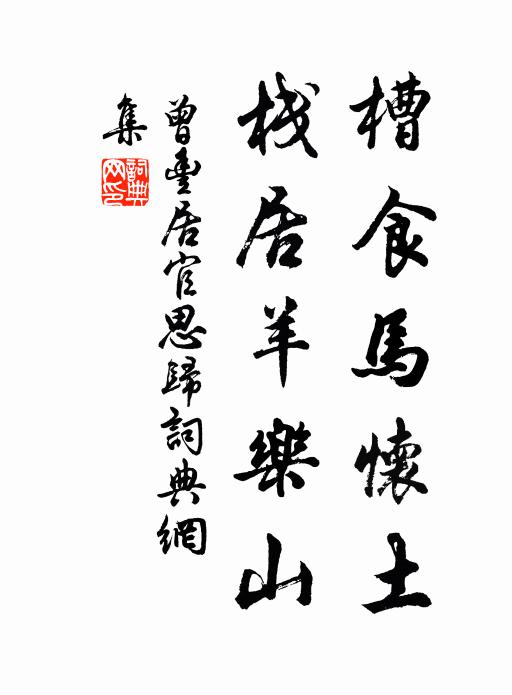 槽食馬懷土
栈居羊樂山
曾豐居官思歸詞典網
集
詞典
网印